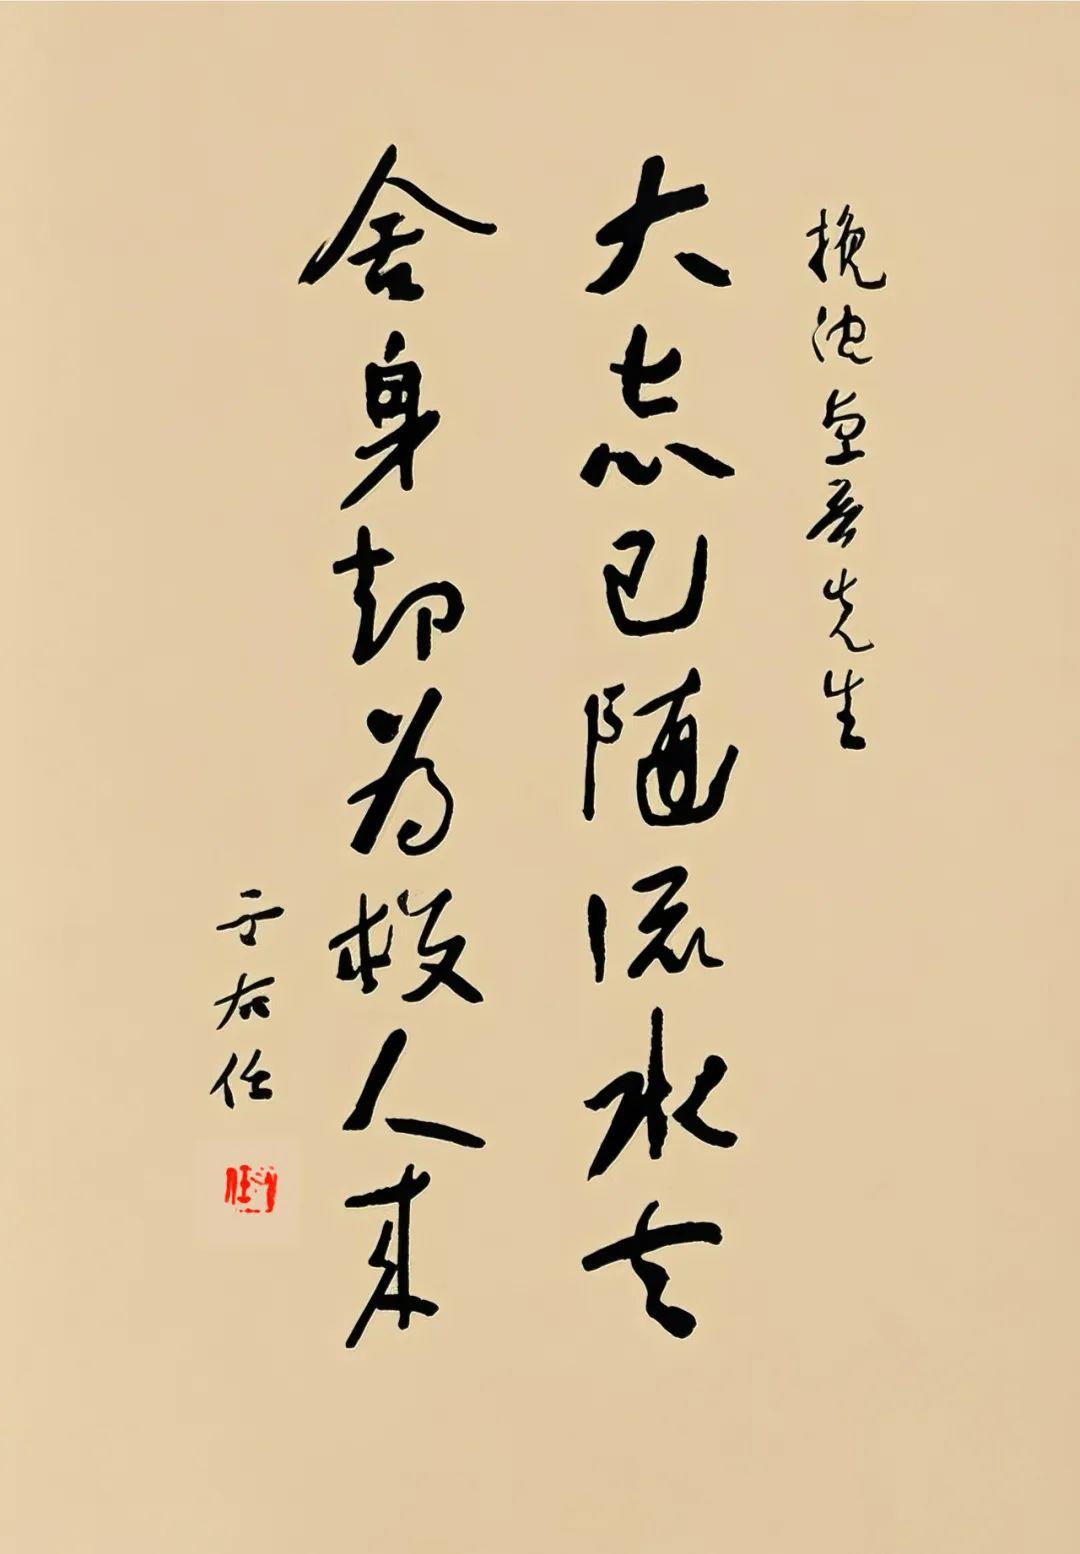 挽沈卓吾先生
大志已随流水去
舍身却为救人来
于右任